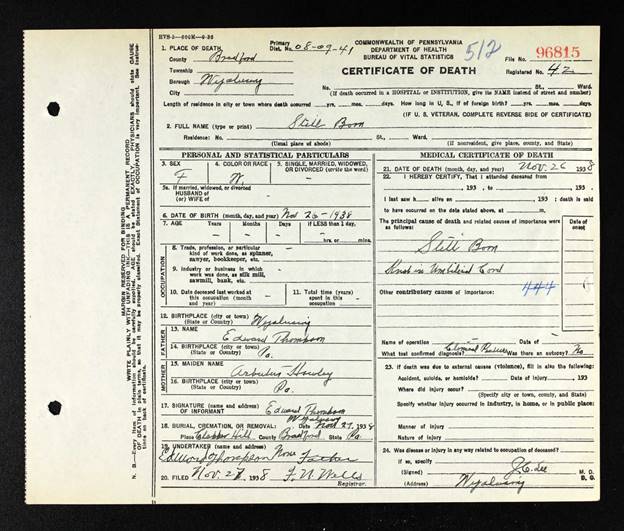 HVS-5—600M—9-36
COMMONWEALTH OF PENNSYLVANIA
DEPARTMENT OF HEALTH
BUREAU OF VITAL STATISTICS
CERTIFICATE OF DEATH
512
File No. 96815
Registered No. 42
Primary Dist. No. 08-09-41
1. PLACE OF DEATH,
County Bradford
Township
Borough Wyalusing
City
No. St., Ward.
(If death occurred in a HOSPITAL or INSTITUTION, give its NAME instead of street and number)
Length of residence in city or town where death occurred yrs. mos. days. How long in U. S., if of foreign birth? yrs. mos. days.
(IF U. S. VETERAN, COMPLETE REVERSE SIDE OF CERTIFICATE)
2. FULL NAME (type or print) Still Born
Residence: No. St., Ward.
(Usual place of abode) (If nonresident, give place, county, and State)
PERSONAL AND STATISTICAL PARTICULARS
3. SEX F
4. COLOR OR RACE W.
5. SINGLE, MARRIED, WIDOWED, OR DIVORCED (write the word)
5a. If married, widowed, or divorced
HUSBAND of
(or) WIFE of
6. DATE OF BIRTH (month, day, and year) Nov 26-1938
7. AGE Years Months Days If LESS than 1 day, hrs. or mins.
OCCUPATION
8. Trade, profession, or particular kind of work done, as spinner, sawyer, bookkeeper, etc.
9. Industry or business in which work was done, as silk mill, sawmill, bank, etc.
10. Date deceased last worked at this occupation (month and year)
11. Total time (years) spent in this occupation
12. BIRTHPLACE (city or town) Wyalusing
(State or Country)
FATHER
13. NAME Edward Thompson
14. BIRTHPLACE (city or town)
(State or Country) Pa.
MOTHER
15. MAIDEN NAME Arbutus Hawley
16. BIRTHPLACE (city or town)
(State or Country) Pa.
17. SIGNATURE (name and address) OF INFORMANT Edward Thompson
Wyalusing
18. BURIAL, CREMATION, OR REMOVAL: Date Nov 27, 1938
Place Hill County Bradford State Pa
19. UNDERTAKER (name and address) Edward Thompson None Father
20. FILED Nov. 27 1938 F. N. Wells
Registrar.
MEDICAL CERTIFICATE OF DEATH
21. DATE OF DEATH (month, day, and year) Nov. 26 1938
22. I HEREBY CERTIFY, That I attended deceased from
, 193 , to , 193
I last saw h alive on , 193 ; death is said
to have occurred on the date stated above, at m.
The principal cause of death and related causes of importance were as follows: Date of onset
Still Born
Knot in Umbilical Cord
Other contributory causes of importance: 444
Name of operation Date of
What test confirmed diagnosis? Was there an autopsy? No
23. If death was due to external causes (violence), fill in also the following:
Accident, suicide, or homicide? Date of injury 193
Where did injury occur?
(Specify city or town, county, and State)
Specify whether injury occurred in industry, in home, or in public place:
Manner of injury
Nature of injury
24. Was disease or injury in any way related to occupation of deceased?
If so, specify
(Signed) J.C. Lee M. D. D. O.
(Address) Wyalusing
MARGIN RESERVED FOR BINDING
WRITE PLAINLY WITH UNFADING INK—THIS IS A PERMANENT RECORD